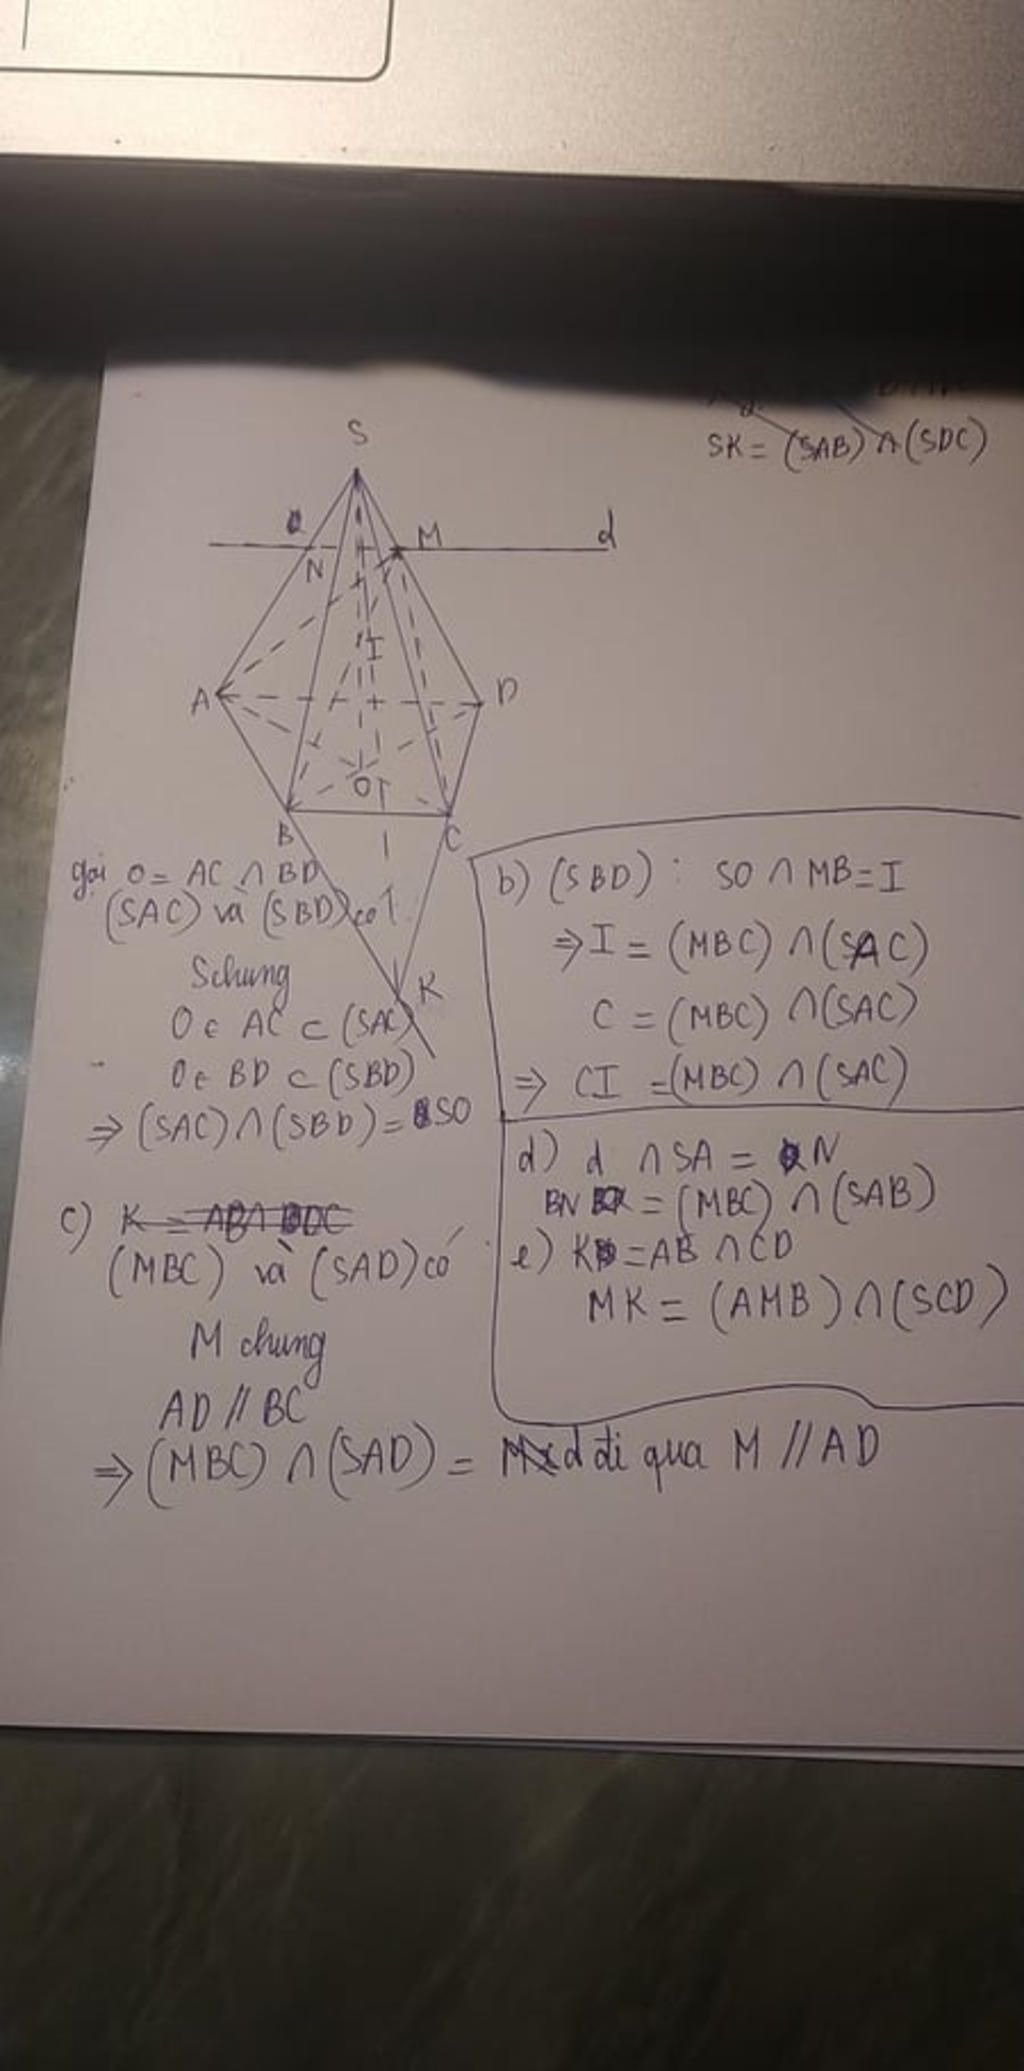 SK = (SAB) ∩ (SDC)
S
M
d
N
I
A
D
O
B
C
K
gọi O = AC ∩ BD
(SAC) và (SBD) có
S chung
O ∈ AC ⊂ (SAC)
O ∈ BD ⊂ (SBD)
⇒ (SAC) ∩ (SBD) = SO
b) (SBD) : SO ∩ MB = I
⇒ I = (MBC) ∩ (SAC)
C = (MBC) ∩ (SAC)
⇒ CI = (MBC) ∩ (SAC)
c) K = AB ∩ DC
(MBC) và (SAD) có
M chung
AD // BC
⇒ (MBC) ∩ (SAD) = d đi qua M // AD
d) d ∩ SA = N
BN = (MBC) ∩ (SAB)
e) K = AB ∩ CD
MK = (AMB) ∩ (SCD)